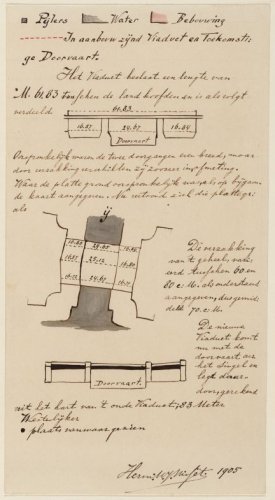 Pijlers Water Bebouwing
In aanbouw zijnd Viaduct en Toekomsti-
ge Doorvaart.
Het Viaduct beslaat een lengte van
M. 61.83 tusschen de landhoofden en is als volgt
verdeeld
61.83
16.52 24.67 16.64
Doorvaart
Oorspronkelijk waren de twee doorgangen even breed, maar
door verzakking verschillen zij zooveel in afmeting.
Waar de platte grond oorspronkelijk was als op bijgaan-
de kaart aangegeven. Nu vertoond zich die plattegr:
als
ij
16.82
16.52
Doorvaart.
De verzakking
van 't geheel, vari-
eerd tusschen 60 en
80 c.M. als onderstaand
aangegeven dus gemid:
deld 70 c.M.
De nieuwe
Viaduct komt
nu met de
doorvaart aan
het Singel en
legt daar-
doorgerekend
uit het hart van 't oude Viaduct, 83 Meter
Westelijker
• plaats vanwaar gezien
1905